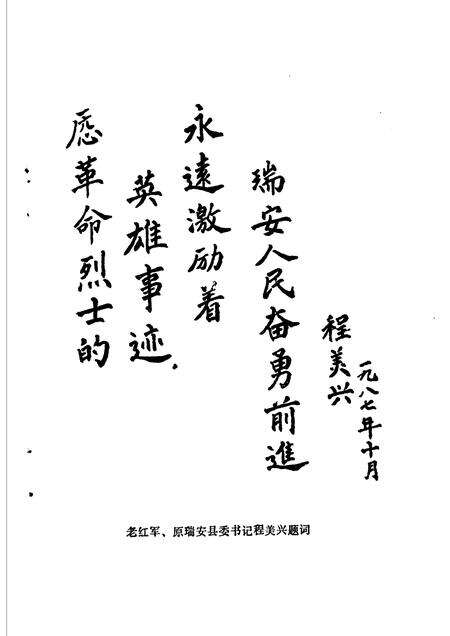 愿革命烈士的
英雄事迹.
永遠激励着
瑞安人民奋勇前進
程美兴
一九八七年十月
老红军、原瑞安县委书记程美兴题词